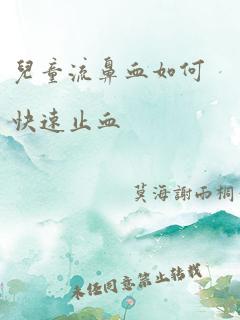 兒童流鼻血如何
快速止血
莫海謝雨桐
未經同意禁止轉載